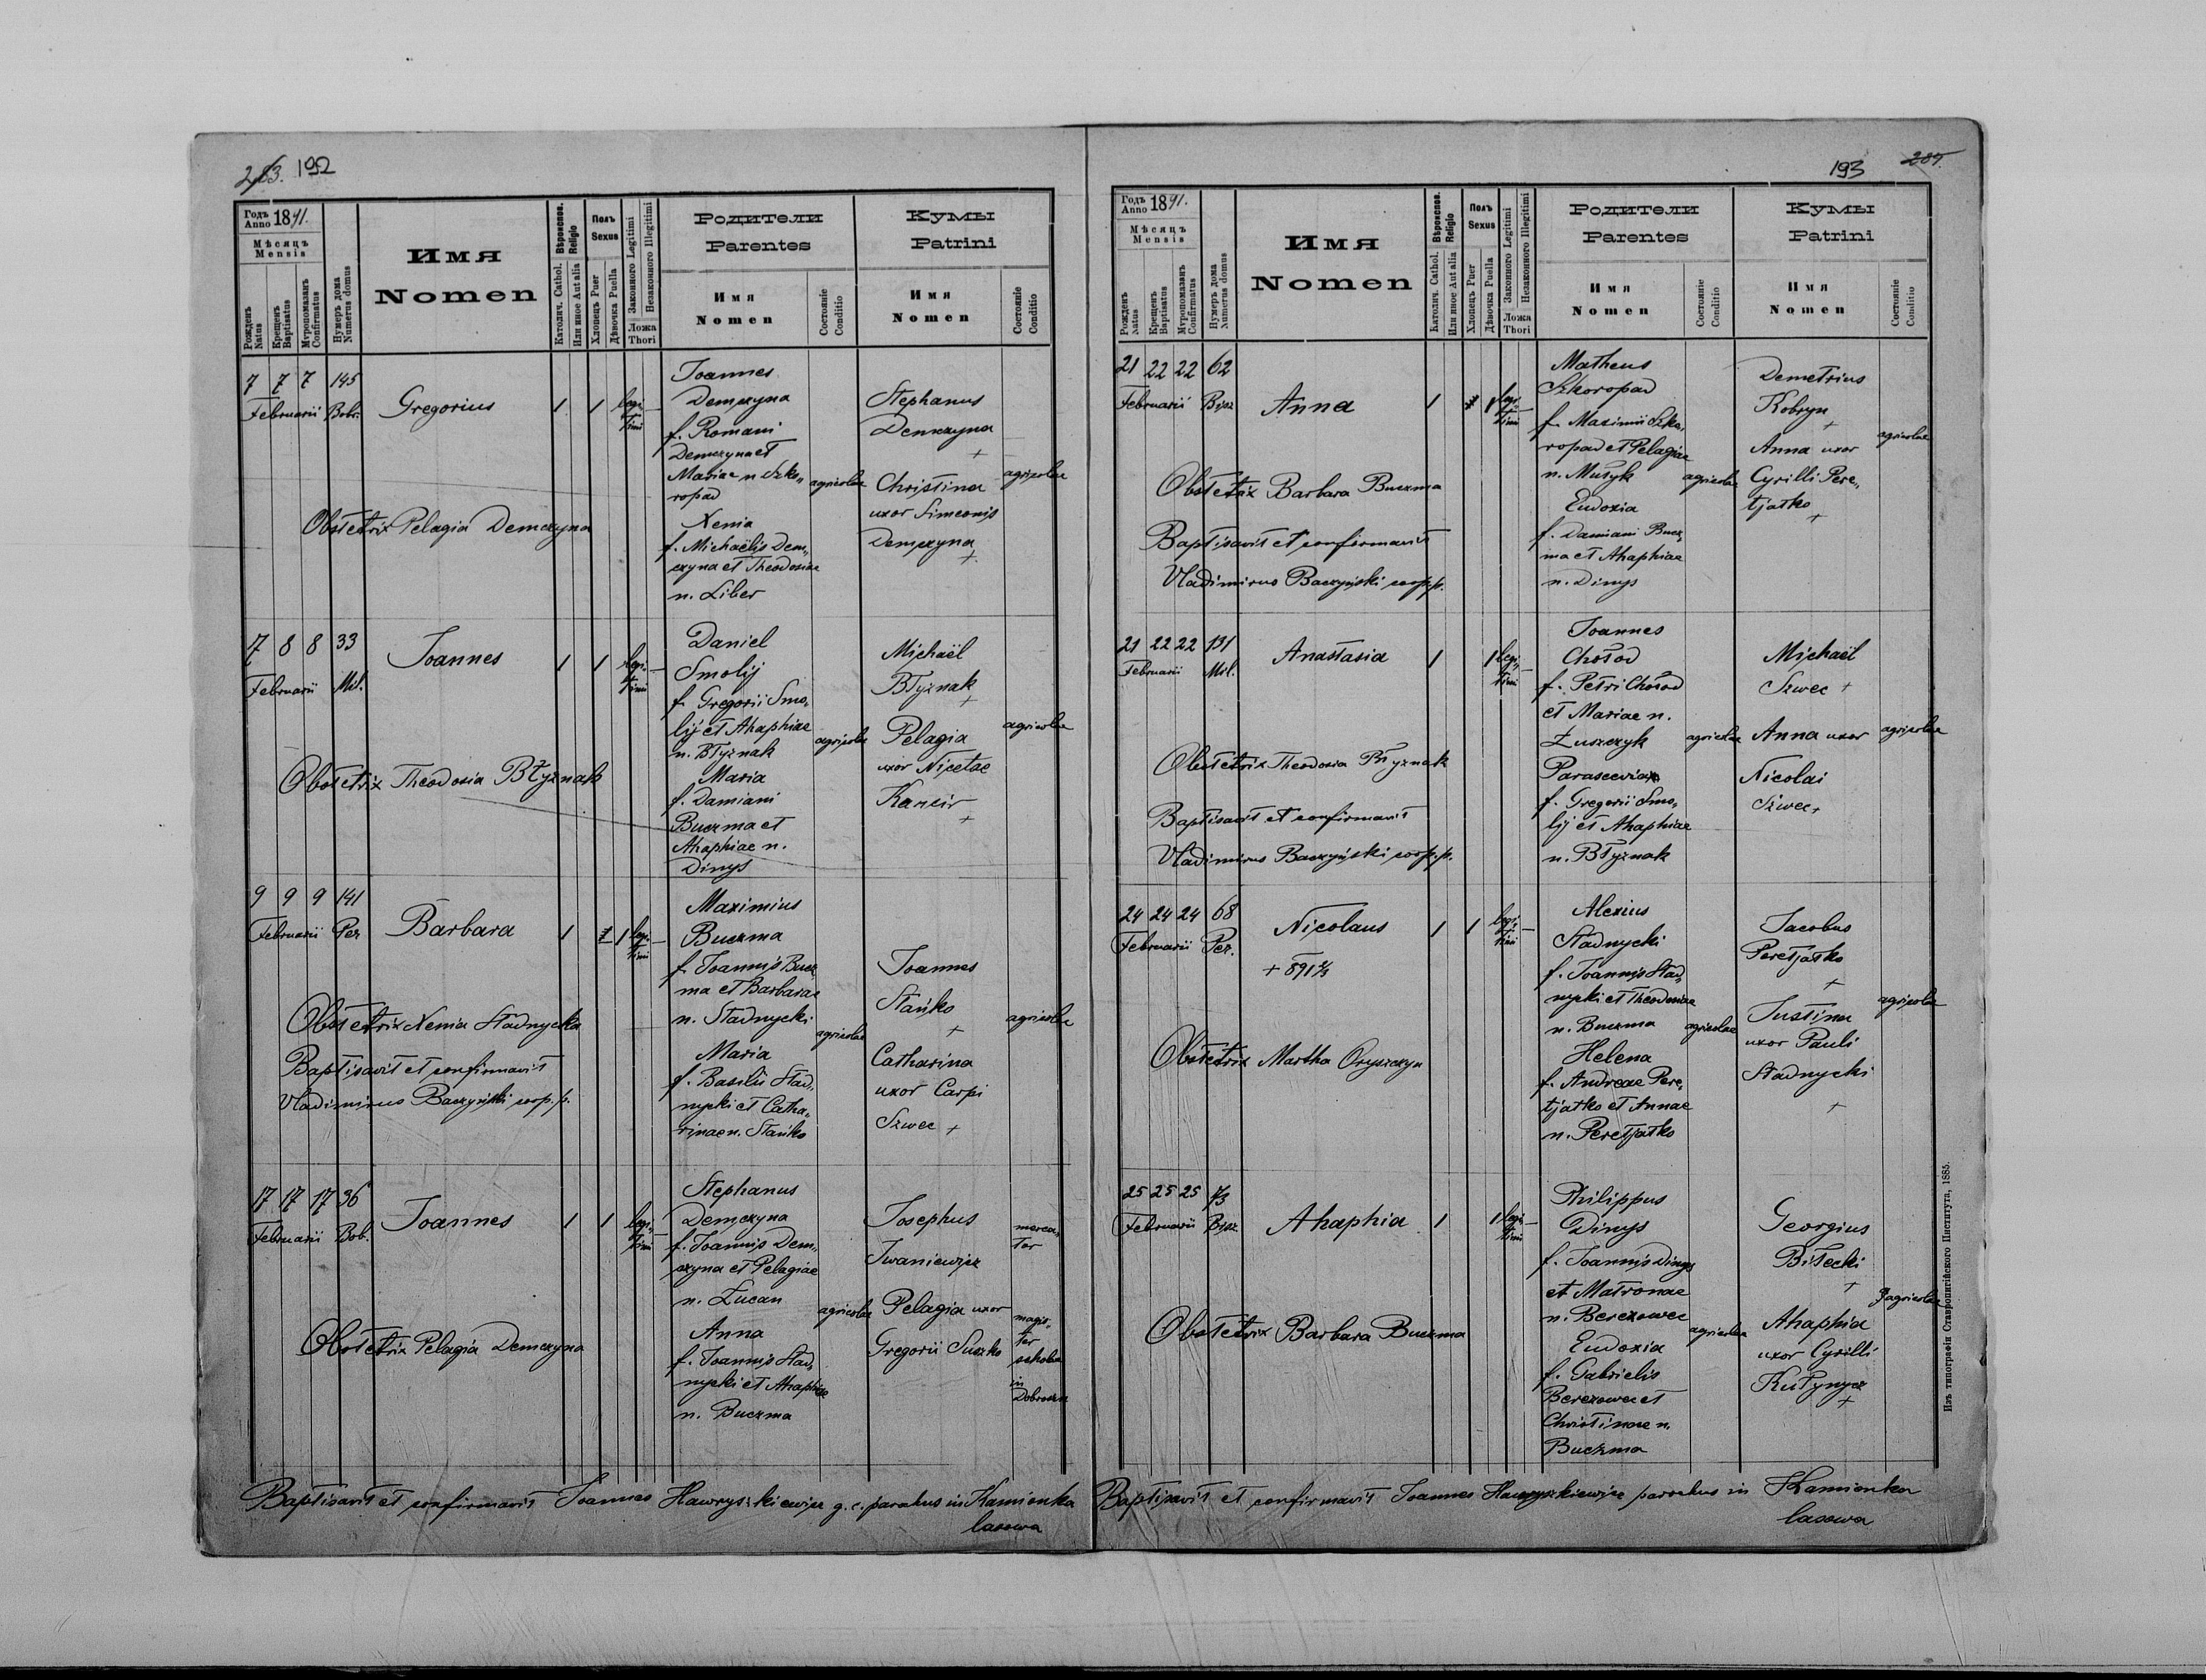 283. 192
Годъ Anno 1891.
Мѣсяцъ Mensis
Рожденъ Natus
Крещенъ Baptisatus
Мѵропомазанъ Confirmatus
Нумеръ дома Numerus domus
Имя
Nomen
Вѣроиспов. Religio
Католич. Cathol.
Или иное Aut alia
Полъ Sexus
Хлопецъ Puer
Дѣвочка Puella
Законного Legitimi
Незаконного Illegitimi
Ложа Thori
Родители
Parentes
Имя
Nomen
Состояніе Conditio
Кумы
Patrini
Имя
Nomen
Состояніе Conditio
7 7 7 145
Februarii Bobr.
Gregorius
1 1 legi„
timi
Joannes
Demczyna
f. Romani
Demczyna et
Mariae n. Szko„
ropad
Xenia
f. Michaëlis Dem„
czyna et Theodosiae
n. Liber
agricolae
Stephanus
Demczyna
+
Christina
uxor Simeonis
Demczyna
+
agricolae
Obstetrix Pelagia Demczyna
7 8 8 33
Februarii Mil.
Joannes
1 1 legi„
timi
Daniel
Smolij
f. Gregorii Smo„
lij et Ahaphiae
n. Błyznak
Maria
f. Damiani
Buczma et
Ahaphiae n.
Dinys
agricolae
Michaël
Błyznak
+
Pelagia
uxor Nicetae
Karcir
+
agricolae
Obstetrix Theodosia Błyznak
9 9 9 141
Februarii Per
Barbara
1 1 legi„
timi
Maximius
Buczma
f. Joannis Bucz
ma et Barbarae
n. Stadnycki
Maria
f. Basilii Stad„
nycki et Catha„
rinae n. Stańko
agricolae
Joannes
Stańko
+
Catharina
uxor Carpi
Szwec +
agricolae
Obstetrix Xenia Stadnycka
Baptisavit et confirmavit
Vladimirus Baczyński coop. p.
17 17 17 36
Februarii Bob.
Joannes
1 1 legi„
timi
Stephanus
Demczyna
f. Joannis Dem„
czyna et Pelagiae
n. Łucan
Anna
f. Joannis Stad„
nycki et Ahaphiae
n. Buczma
agricolae
Josephus
Iwaniewicz
merca„
tor
Pelagia uxor
Gregorii Suszko
magis„
ter
scholae
in
Obstetrix Pelagia Demczyna
Baptisavit et confirmavit Joannes Hawryszkiewicz g. c. parochus in Kamionka
lasowa
193 284.
Годъ Anno 1891.
Мѣсяцъ Mensis
Рожденъ Natus
Крещенъ Baptisatus
Мѵропомазанъ Confirmatus
Нумеръ дома Numerus domus
Имя
Nomen
Вѣроиспов. Religio
Католич. Cathol.
Или иное Aut alia
Полъ Sexus
Хлопецъ Puer
Дѣвочка Puella
Законного Legitimi
Незаконного Illegitimi
Ложа Thori
Родители
Parentes
Имя
Nomen
Состояніе Conditio
Кумы
Patrini
Имя
Nomen
Состояніе Conditio
21 22 22 62
Februarii
Anna
1 1 legi„
timi
Matheus
Szkoropad
f. Maximii Szko„
ropad et Pelagiae
n. Musyk
Eudoxia
f. Damiani Bucz„
ma et Ahaphiae
n. Dinys
agricolae
Demetrius
Kobryn
+
Anna uxor
Cyrilli Pere„
tjatko
+
agricolae
Obstetrix Barbara Buczma
Baptisavit et confirmavit
Vladimirus Baczyński coop. p.
21 22 22 131
Februarii Mil.
Anastasia
1 1 legi„
timi
Joannes
Chołod
f. Petri Chołod
et Mariae n.
Łuszczyk
Parascevia
f. Gregorii Smo„
lij et Ahaphiae
n. Błyznak
agricolae
Michaël
Szwec +
Anna uxor
Nicolai
Szwec +
agricolae
Obstetrix Theodosia Błyznak
Baptisavit et confirmavit
Vladimirus Baczyński coop. p.
24 24 24 68
Februarii Per.
Nicolaus
1 1 legi„
timi
Alexius
Stadnycki
f. Joannis Stad„
nycki et Theodosiae
n. Buczma
Helena
f. Andreae Pere„
tjatko et Annae
n. Peretjatko
agricolae
Jacobus
Peretjatko
+
Justina
uxor Pauli
Stadnycki
+
agricolae
Obstetrix Martha Oryszczyn
25 25 25
Februarii
Ahaphia
1 1 legi„
timi
Philippus
Dinys
f. Joannis Dinys
et Matronae
n. Berezowec
Eudoxia
f. Gabrielis
Berezowec et
Christinae n.
Buczma
agricolae
Georgius
Biłecki
+
Ahaphia
uxor Cyrilli
Kułynycz
+
agricolae
Obstetrix Barbara Buczma
Baptisavit et confirmavit Joannes Hawryszkiewicz parochus in Kamionka
lasowa
Изъ типографіи Ставропигійского Института, 1885.